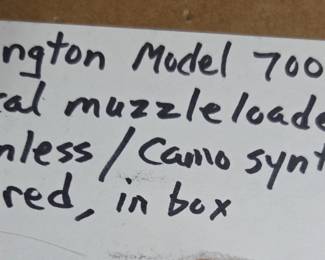 ngton Model 700
cal muzzleloade
nless/Camo synt
red, in box